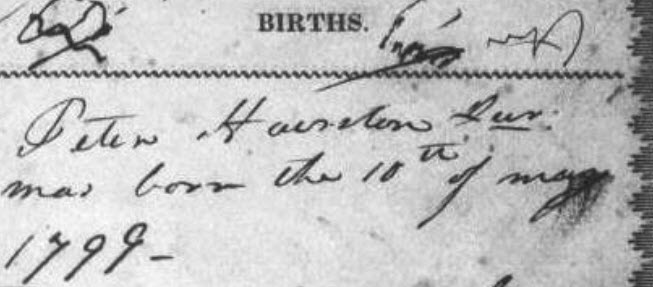 BIRTHS.
Peter Hairston Jur.
was born the 10th of may
1799-